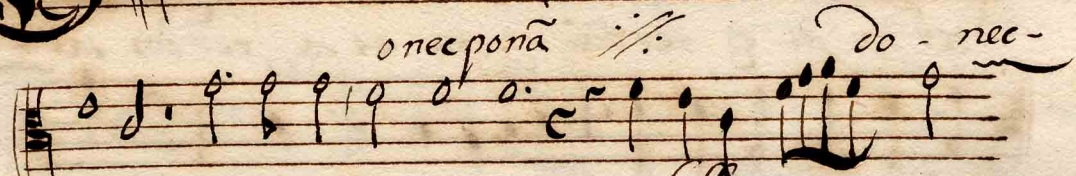 onec ponã ·//· do - nec -